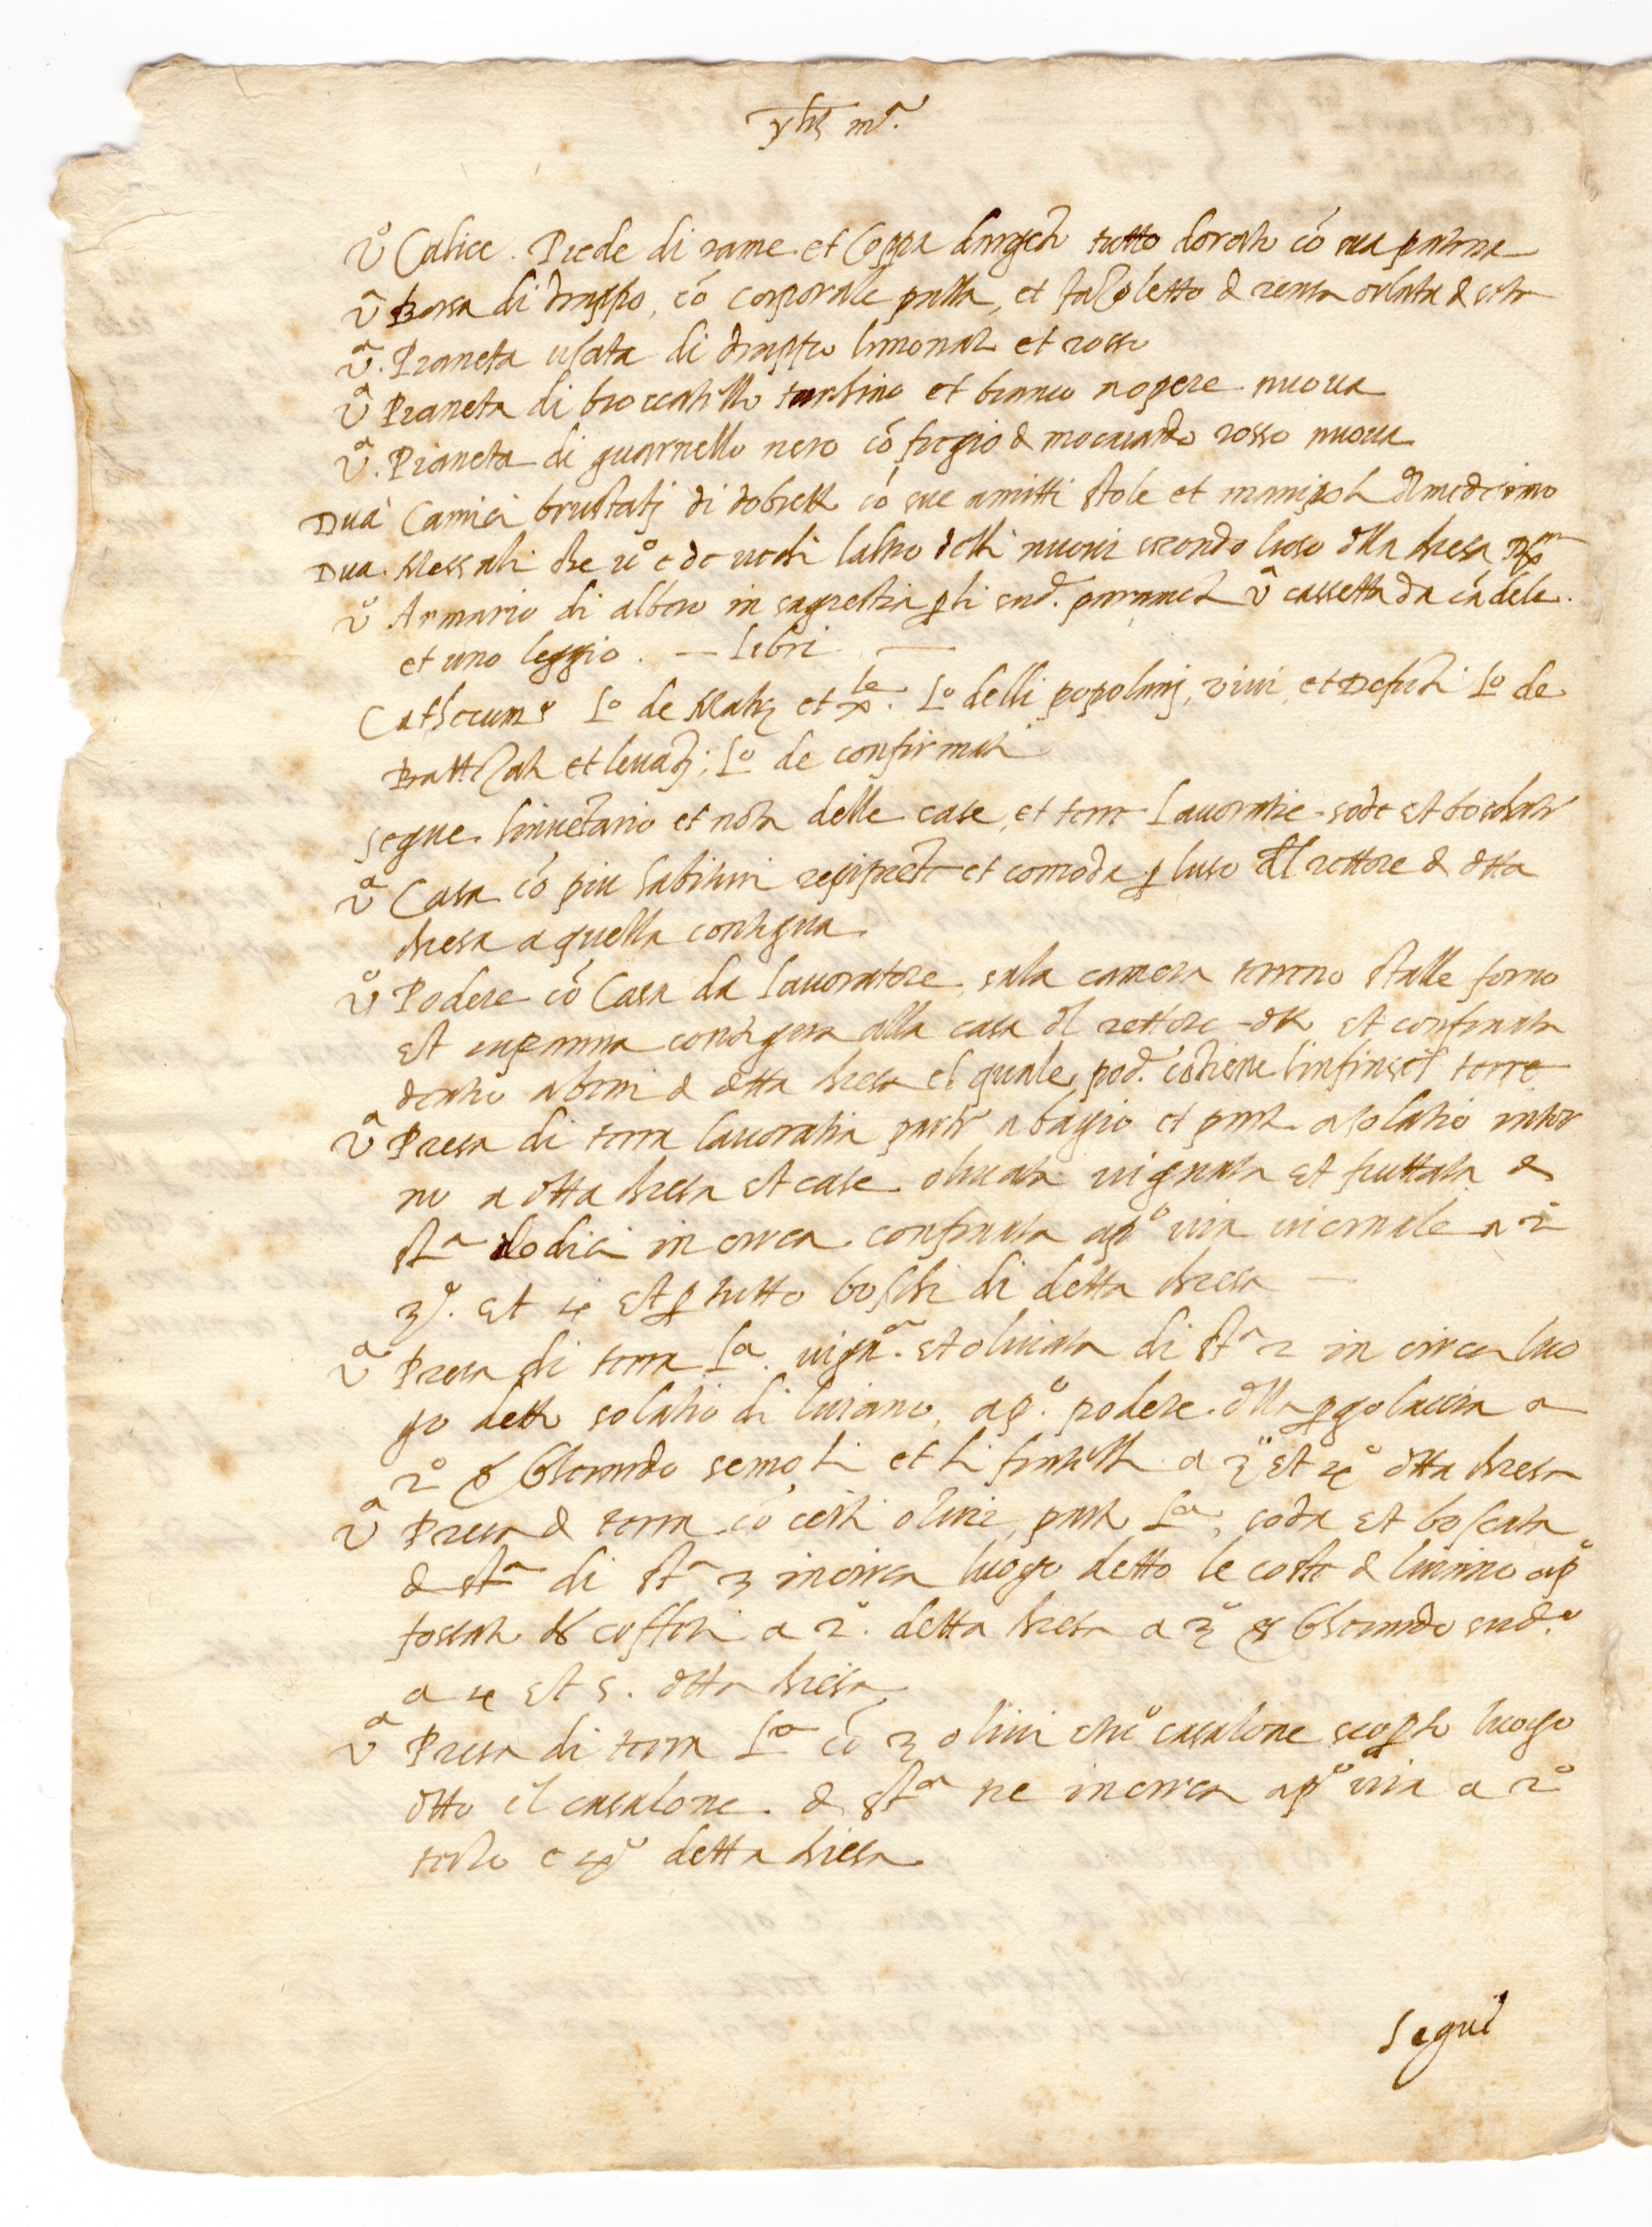 yhs mª.
Vº Calice. Piede di rame et Coppa dargẽto tutto dorato cõ sua patena
Vª Borsa di drappo, cõ corporale palla, et fazoletto d rensa orlata d seta
Vª. Pianeta usata di drappo limonato et rosso
Vª Pianeta di broccatello turchino et bianco a opere nuova
Vª. Pianeta di guarnello nero cõ fregio d mocaiardo rosso nuova
Dua Camici brustati di dobretto cõ sue amitti stole et manipoli dl medesimo
Dua Messali che uº e de vechi laltro delli nuovi secondo luso dlla chiesa
Vº Armario di albero in sagrestia p li sud. paramẽti Vª cassetta da cãdele.
et uno leggio. — libri —
Cathecum Lº de Matrj et Lº delli popolani, vivi, et Defunti Lº de
Battezati et levatj; Lº de confirmati
segue linvẽtario et nota delle case, et terre Lavoratie sode et boschate
Vª Casa cõ piu habituri et comoda p luso dl rettore d dtta
chiesa a quella contigua
Vº Podere cõ Casa da Lavoratore, sala camera terreno stalle forno
et capanna contigua alla casa dl rettore dtto et confinata
dentro a beni d dtta chiesa el quale pod. cõtiene linfrascte terre
Vª Presa di terra lavoratia parte a bagio et parte a solatio intor
no a dtta chiesa et case olivata vignata et fruttata d
stª dodici in circa confinata apº via vicinale a 2º
3º. et 4 et p tutto boschi di detta chiesa —
Vª Presa di terra Lª. vignª. et olivata di stª 2 in circa luo
go detto solatio di luiano, apº. podere dlla pgolaccia a
2º Gherardo semoli et li fratelli a 3º et 4º dtta chiesa
Vª Presa d terra cõ certi olivi, parte Lª, soda et boscata
d stª di stª 3 incirca luogo detto le coste d luiano apº
fossato a 2º. detta chiesa a 3º Gherardo sudº
a 4 et 5. dtta chiesa
Vª Presa di terra Lª cõ 3 olivi casalone scopto luogo
dtto il casalone. d stª tre incirca apº via a 2º
terzo e 4º detta chiesa
Segue